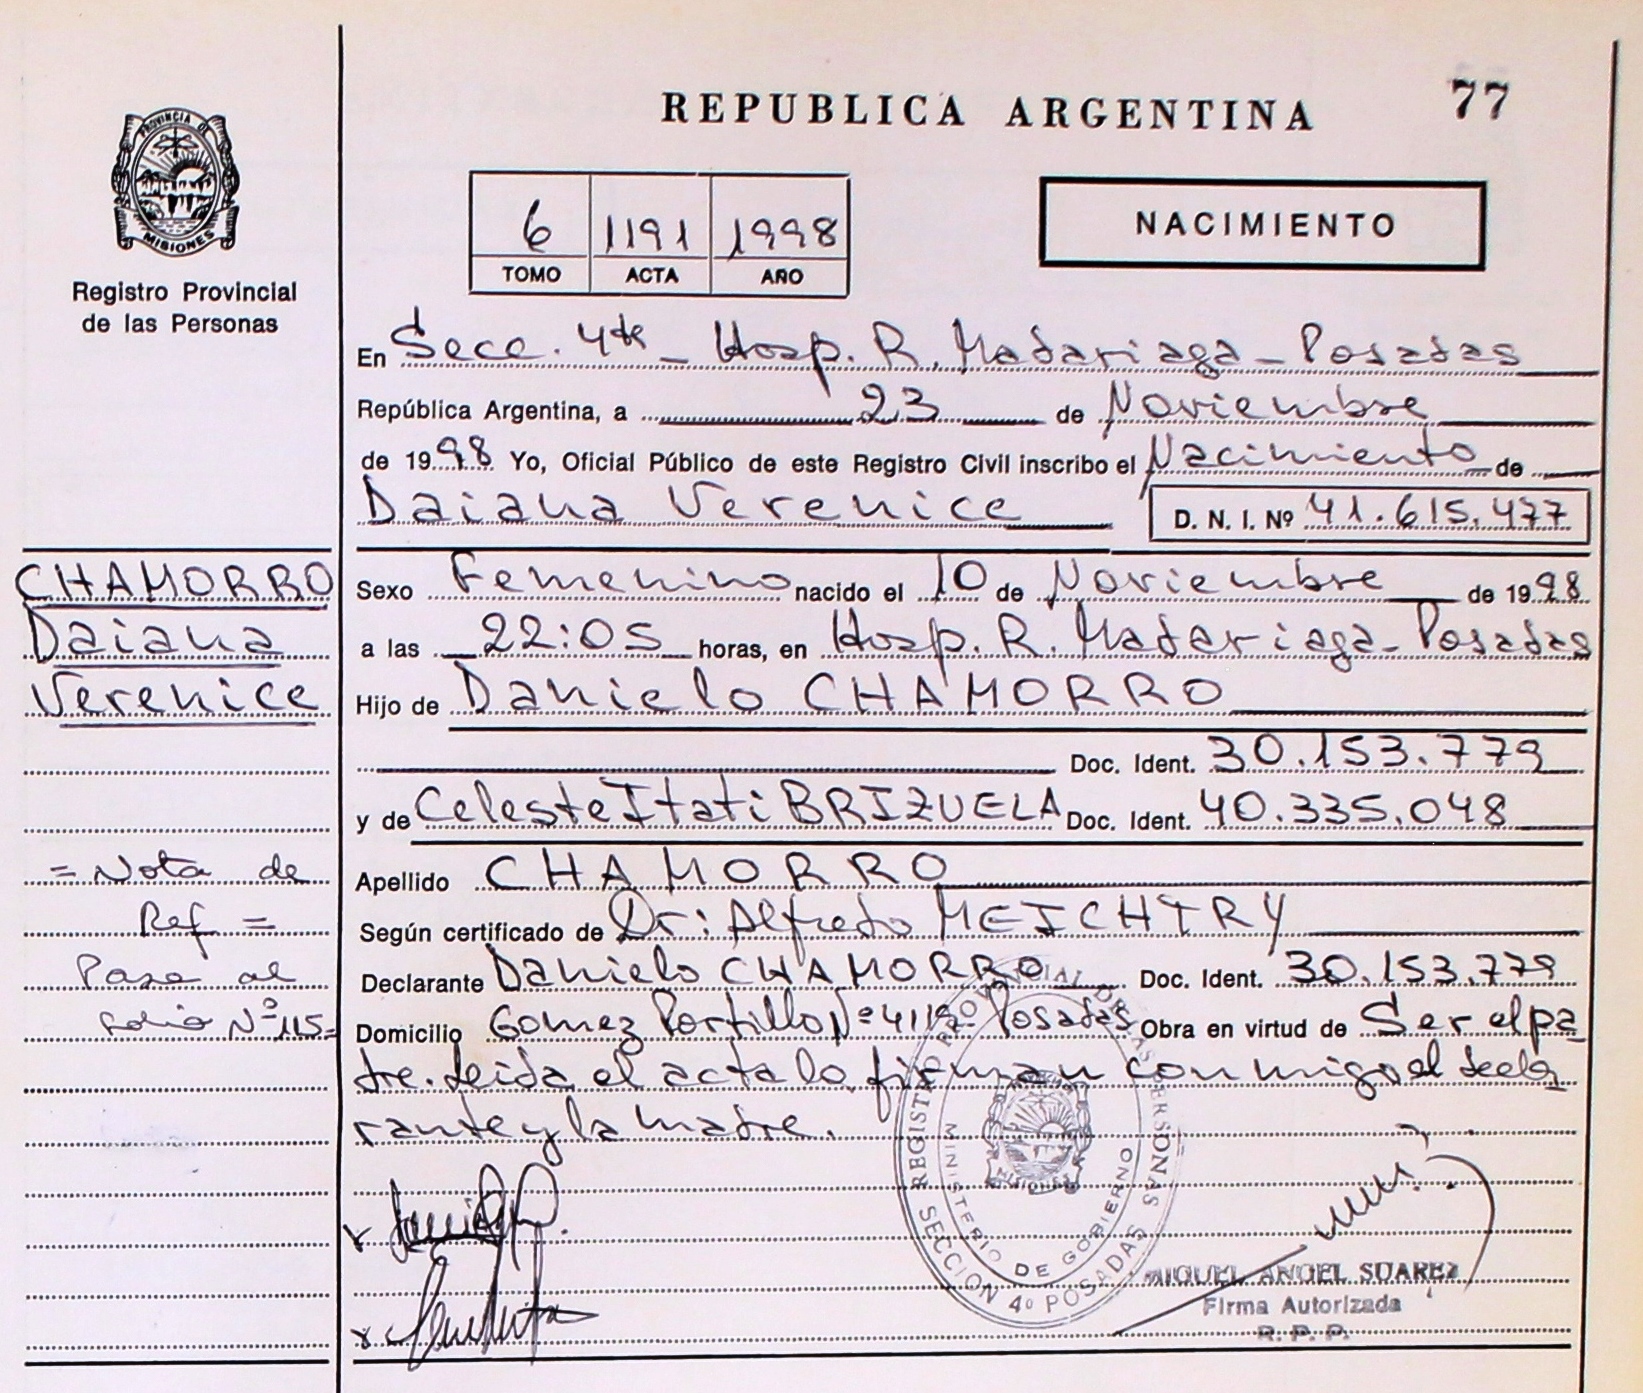 77
REPUBLICA ARGENTINA
PROVINCIA DE
MISIONES
Registro Provincial
de las Personas
6 1191 1998
TOMO ACTA AÑO
NACIMIENTO
En Secc. 4ta - Hosp. R. Madariaga - Posadas
República Argentina, a 23 de Noviembre
de 1998 Yo, Oficial Público de este Registro Civil inscribo el Nacimiento de
Daiana Verenice D. N. I. Nº 41.615.477
CHAMORRO
Daiana
Verenice
Sexo Femenino nacido el 10 de Noviembre de 1998
a las 22:05 horas, en Hosp. R. Madariaga - Posadas
Hijo de Danielo CHAMORRO
Doc. Ident. 30.153.779
y de Celeste Itati BRIZUELA Doc. Ident. 40.335.048
Apellido CHAMORRO
Según certificado de Dr: Alfredo MEICHTRY
Declarante Danielo CHAMORRO Doc. Ident. 30.153.779
Domicilio Gomez Portillo Nº 4119 - Posadas Obra en virtud de Ser el pa
dre. Leida el acta lo firman conmigo el decla
rante y la madre.
= Nota de
Ref =
Pase al
folio Nº 115 =
REGISTRO PROVINCIAL DE LAS PERSONAS
MINISTERIO DE GOBIERNO
MISIONES
SECCION 4º POSADAS
MIGUEL ANGEL SUAREZ
Firma Autorizada
R. P. P.